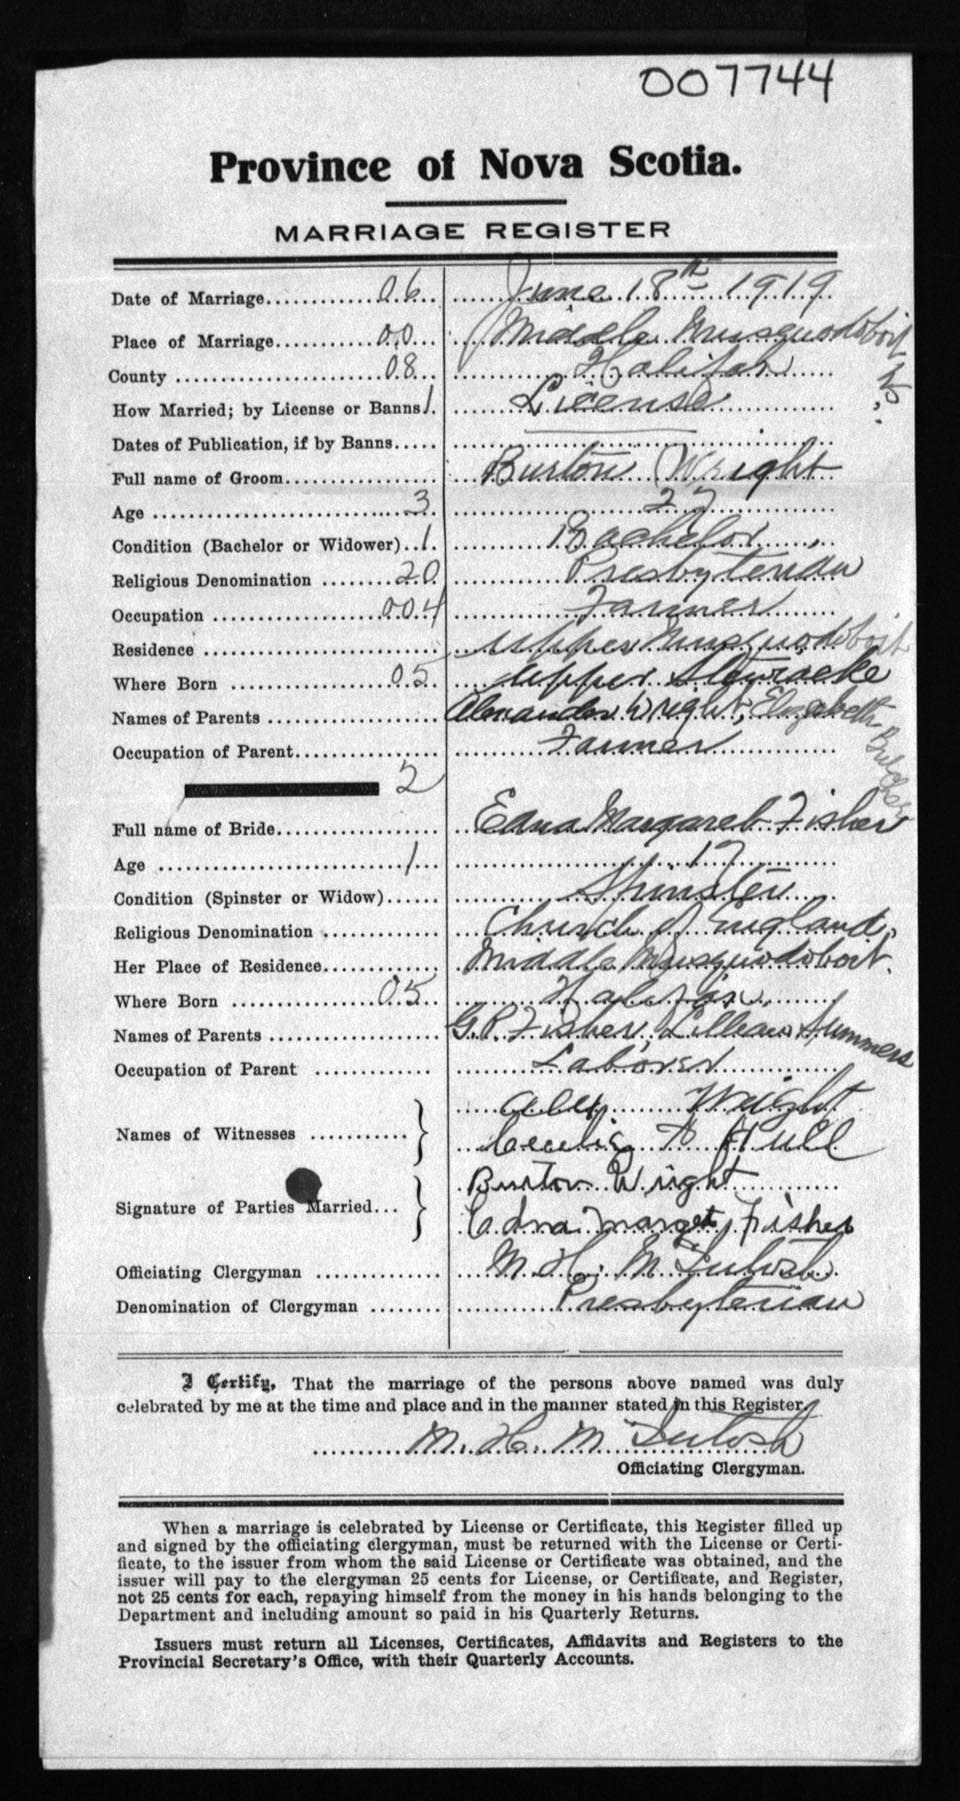 007744
Province of Nova Scotia.
MARRIAGE REGISTER
Date of Marriage 06 June 18th 1919
Place of Marriage 00 Middle Musquodoboit N.S.
County 08 Halifax
How Married; by License or Banns 1 License
Dates of Publication, if by Banns
Full name of Groom Burton Wright
Age 3 27
Condition (Bachelor or Widower) 1 Bachelor
Religious Denomination 20 Presbyterian
Occupation 004 Farmer
Residence Upper Musquodoboit
Where Born 05 Upper Stewiacke
Names of Parents Alexander Wright, Elizabeth
Occupation of Parent Farmer
2
Full name of Bride Edna Margaret Fisher
Age 1 17
Condition (Spinster or Widow) Spinster
Religious Denomination Church of England,
Her Place of Residence Middle Musquodoboit.
Where Born 05 Halifax,
Names of Parents G.R. Fisher, Lillian Summers
Occupation of Parent Laborer
Names of Witnesses } Alex Wright
Hull
Signature of Parties Married } Burton Wright
Edna Marget Fisher
Officiating Clergyman M. H. McIntosh
Denomination of Clergyman Presbyterian
I Certify, That the marriage of the persons above named was duly
celebrated by me at the time and place and in the manner stated in this Register.
M. H. McIntosh
Officiating Clergyman.
When a marriage is celebrated by License or Certificate, this Register filled up
and signed by the officiating clergyman, must be returned with the License or Certi-
ficate, to the issuer from whom the said License or Certificate was obtained, and the
issuer will pay to the clergyman 25 cents for License, or Certificate, and Register,
not 25 cents for each, repaying himself from the money in his hands belonging to the
Department and including amount so paid in his Quarterly Returns.
Issuers must return all Licenses, Certificates, Affidavits and Registers to the
Provincial Secretary's Office, with their Quarterly Accounts.